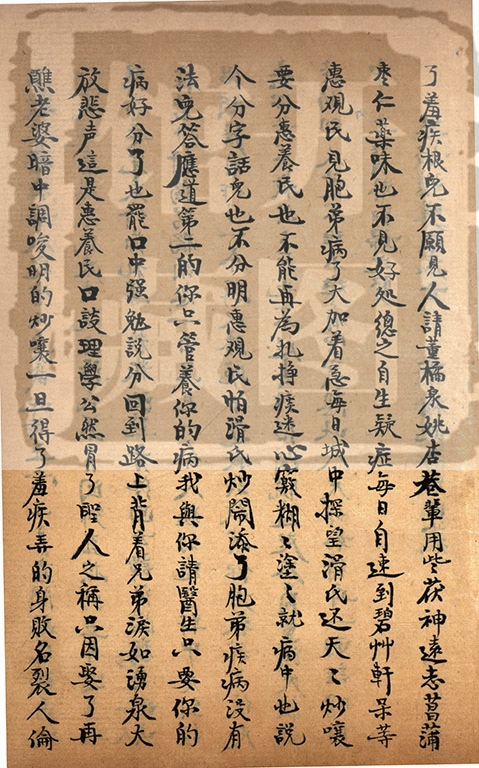 了羞疾根兒不願見人請董橘泉姚杏菴輩用些茯神遠志菖蒲
枣仁藥味也不見好処總之自生疑症每日自速到碧艸軒呆等
惠观民見胞弟病了大加着急每日城中探望滑氏还天〻炒嚷
要分惠養民也不能再為扎挣疾迷心竅糊〻塗〻就病中也說
个分字話兒也不分明惠观民怕滑氏炒鬧添了胞弟疾病没有
法兒答應道第二的你只管養你的病我與你請醫生只要你的
病好分了也罷口中强勉說分回到路上背着兄弟淚如湧泉大
放悲声這是惠養民口談理學公然冒了聖人之稱只因娶了再
醮老婆暗中調唆明的炒嚷一旦得了羞疾弄的身敗名裂人倫